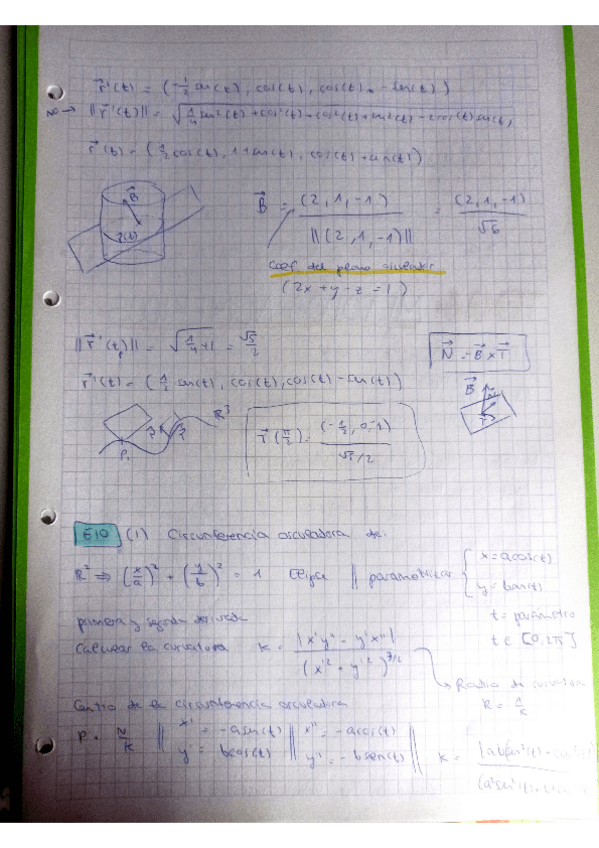 r⃗'(t) = (-1/2 sen(t), cos(t), cos(t) - sen(t))
NO → ||r⃗'(t)|| = √(1/4 sen²(t) + cos²(t) + cos²(t) + sen²(t) - 2cos(t)sen(t))
r⃗(t) = (1/2 cos(t), 1+sen(t), cos(t)+sen(t))
B⃗
r(t)
B⃗ = (2,1,-1) / ||(2,1,-1)|| = (2,1,-1) / √6
Coef del plano osculador
(2x+y-z=1)
||r⃗'(t)|| = √(1/4+1) = √5/2
N⃗ = B⃗ x T⃗
r⃗'(t) = (1/2 sen(t), cos(t), cos(t) - sen(t))
R³
P₁
T⃗(π/2) = (-1/2, 0, -1) / √5/2
B⃗
T
E10 (1) Circunferencia osculadora de:
R² ⇒ (x/a)² + (y/b)² = 1 Elipse || parametrizar { x = acos(t)
y = bsen(t)
primera y segunda derivada
t = parámetro
Calcular la curvatura k = |x'y" - y'x"| / (x'² + y'²)^3/2
t ∈ [0,2π]
→ Radio de curvatura
R = 1/k
Centro de la circunferencia osculadora
P + N/k || x' = -asen(t) || x" = -acos(t) ||
y' = bcos(t) y" = -bsen(t) k =